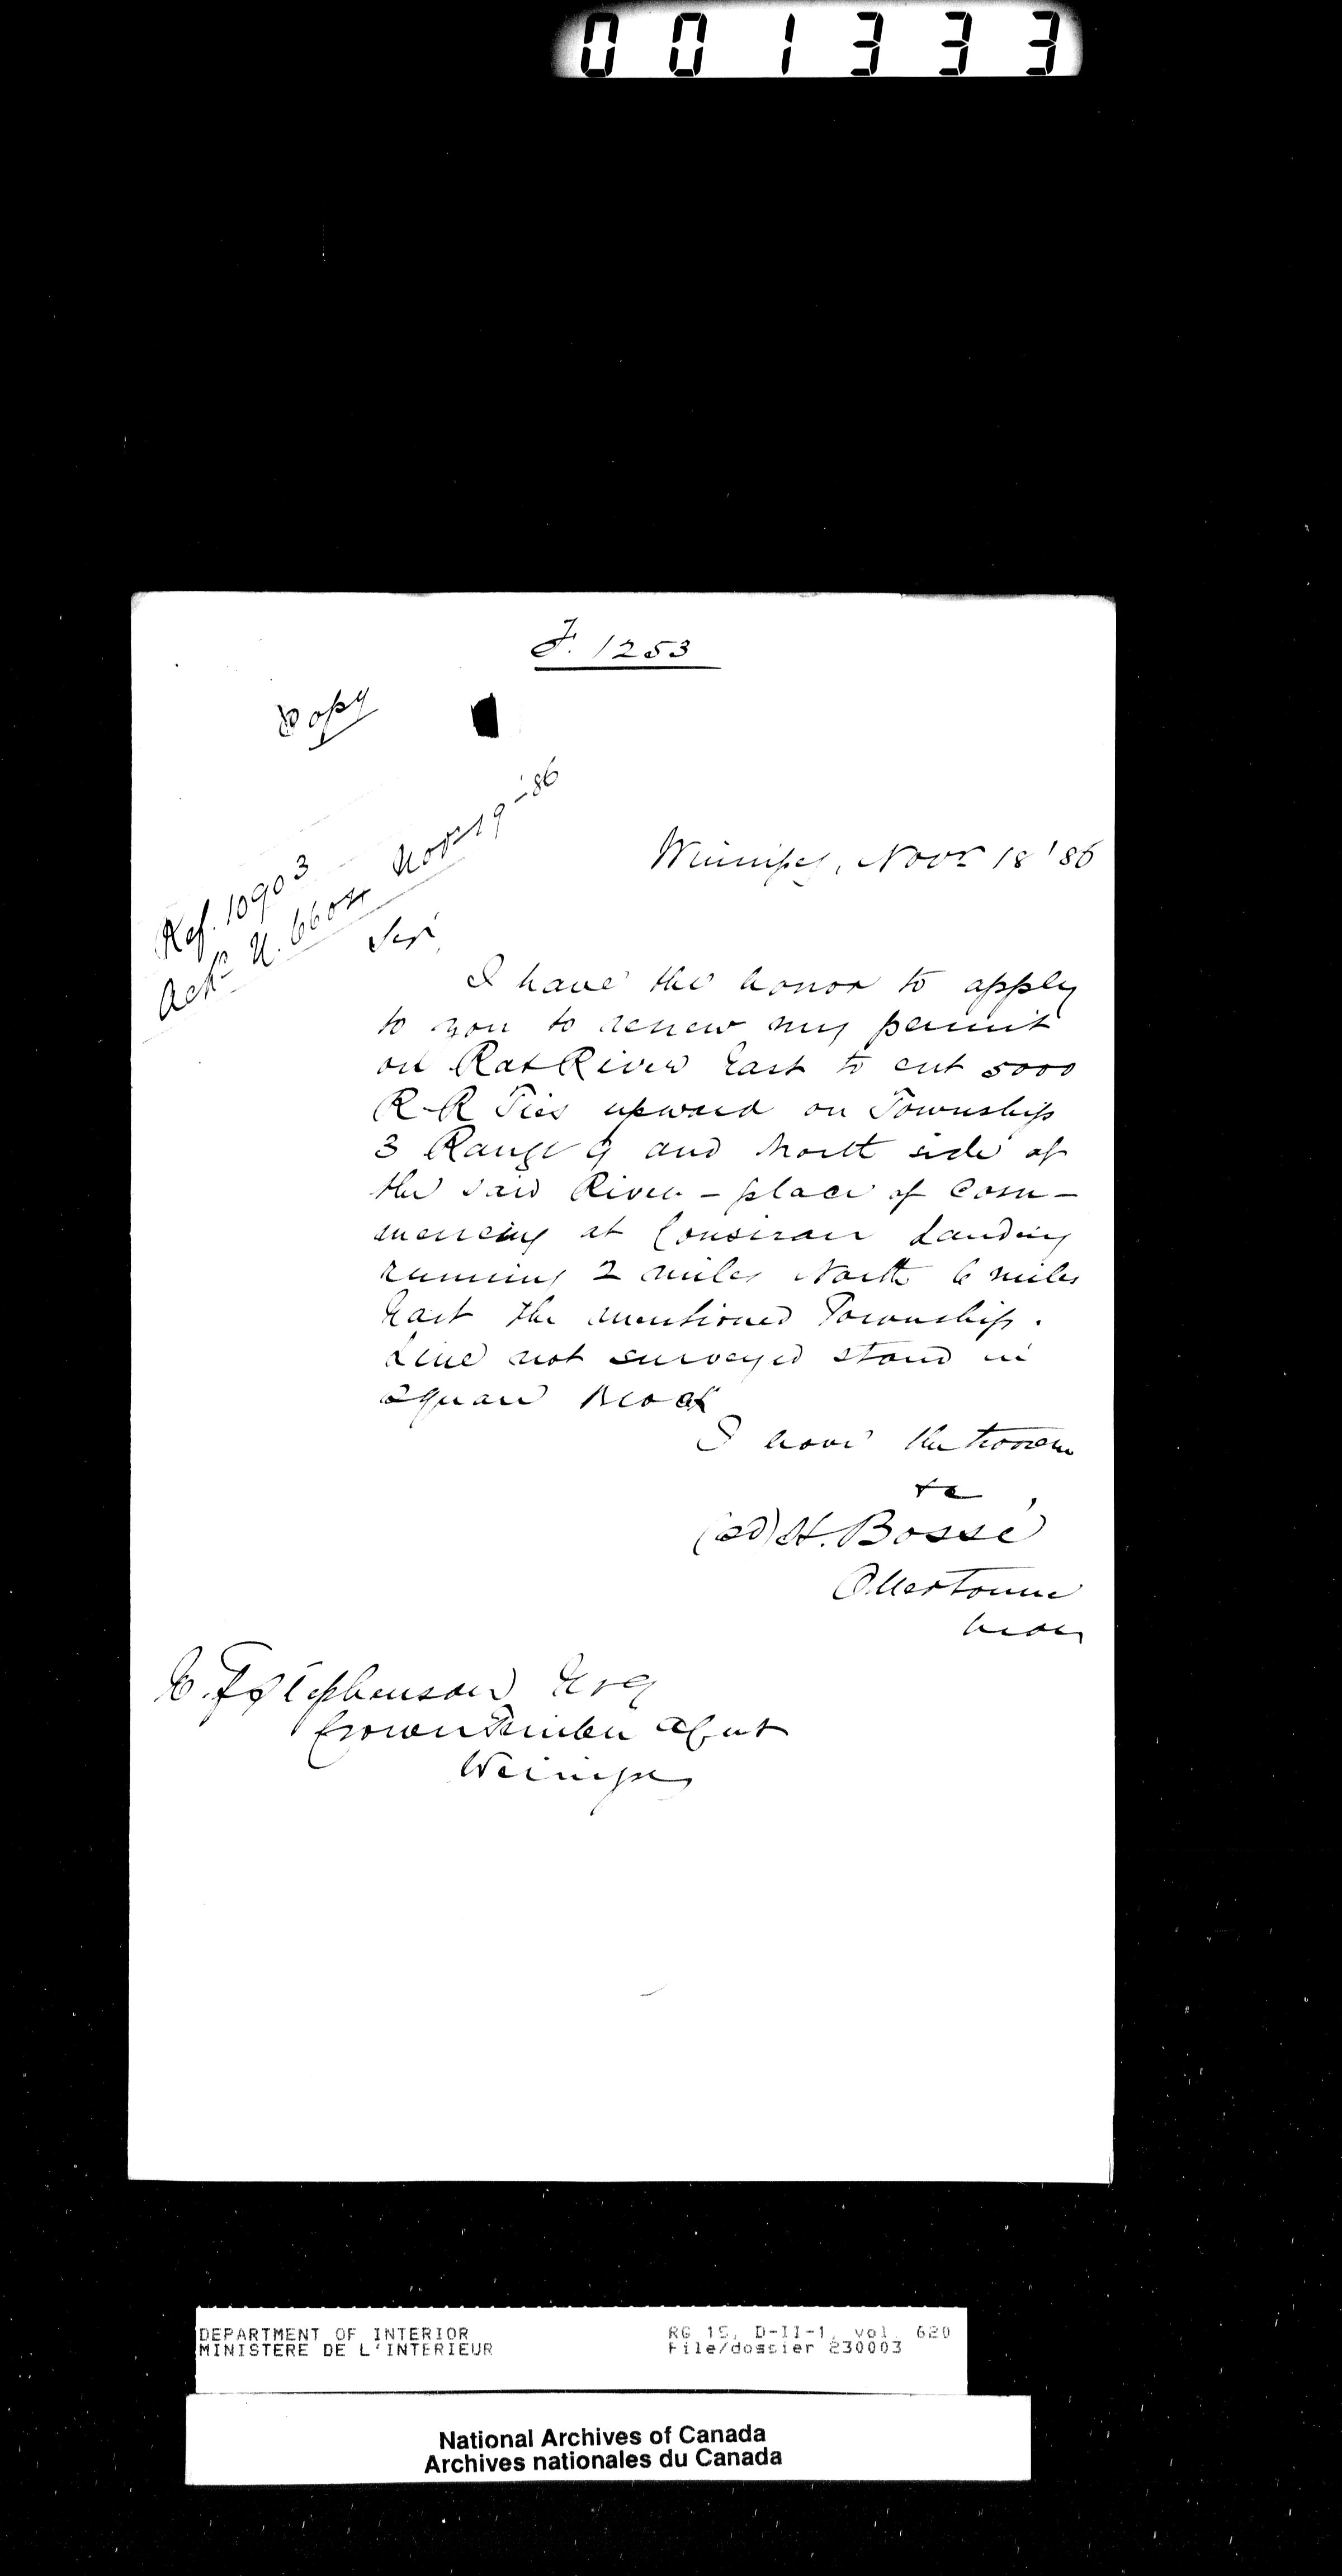 001333
F. 1253
Copy
Ref. 10903
Ackd U. 6604 Novr 19 - '86
Winnipeg, Novr 18 '86
Sir,
I have the honor to apply
to you to renew my permit
on Rat River East to cut 5000
R-R Ties upward on Township
3 Range 9 and North side of
the said River - place of Com-
mencing at Landing
running 2 miles North 6 miles
East the mentioned Township.
Line not surveyed stand in
square Block
I have the honor
&c
(sd) H. Bossé
Otterburne
E. F. Stephenson Esq
Crown Timber Agent
Winnipeg
DEPARTMENT OF INTERIOR
MINISTERE DE L'INTERIEUR
RG 15, D-II-1, vol. 620
File/dossier 230003
National Archives of Canada
Archives nationales du Canada